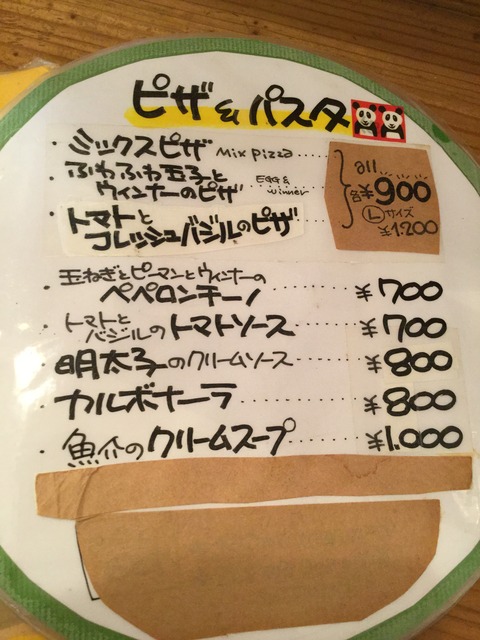 ピザ & パスタ
・ミックスピザ Mix pizza ……
・ふわふわ玉子と
ウィンナーのピザ Egg & winner
・トマトと
フレッシュバジルのピザ ……
all
各¥900
Ⓛサイズ
¥1.200
・玉ねぎとピーマンとウィンナーの
ペペロンチーノ …… ¥700
・トマトと
バジルのトマトソース …… ¥700
・明太子のクリームソース …… ¥800
・カルボナーラ …… ¥800
・魚介のクリームスープ …… ¥1.000